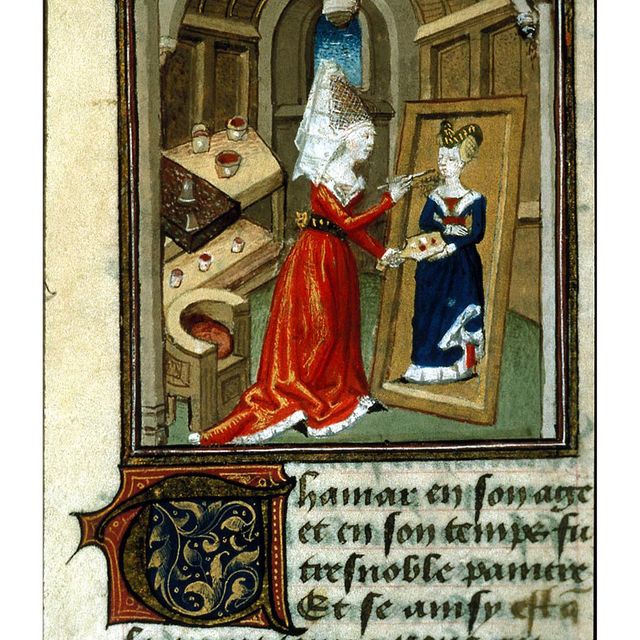 Thamar en son age
et en son temps fu
tresnoble paintre
Et se ainsy est